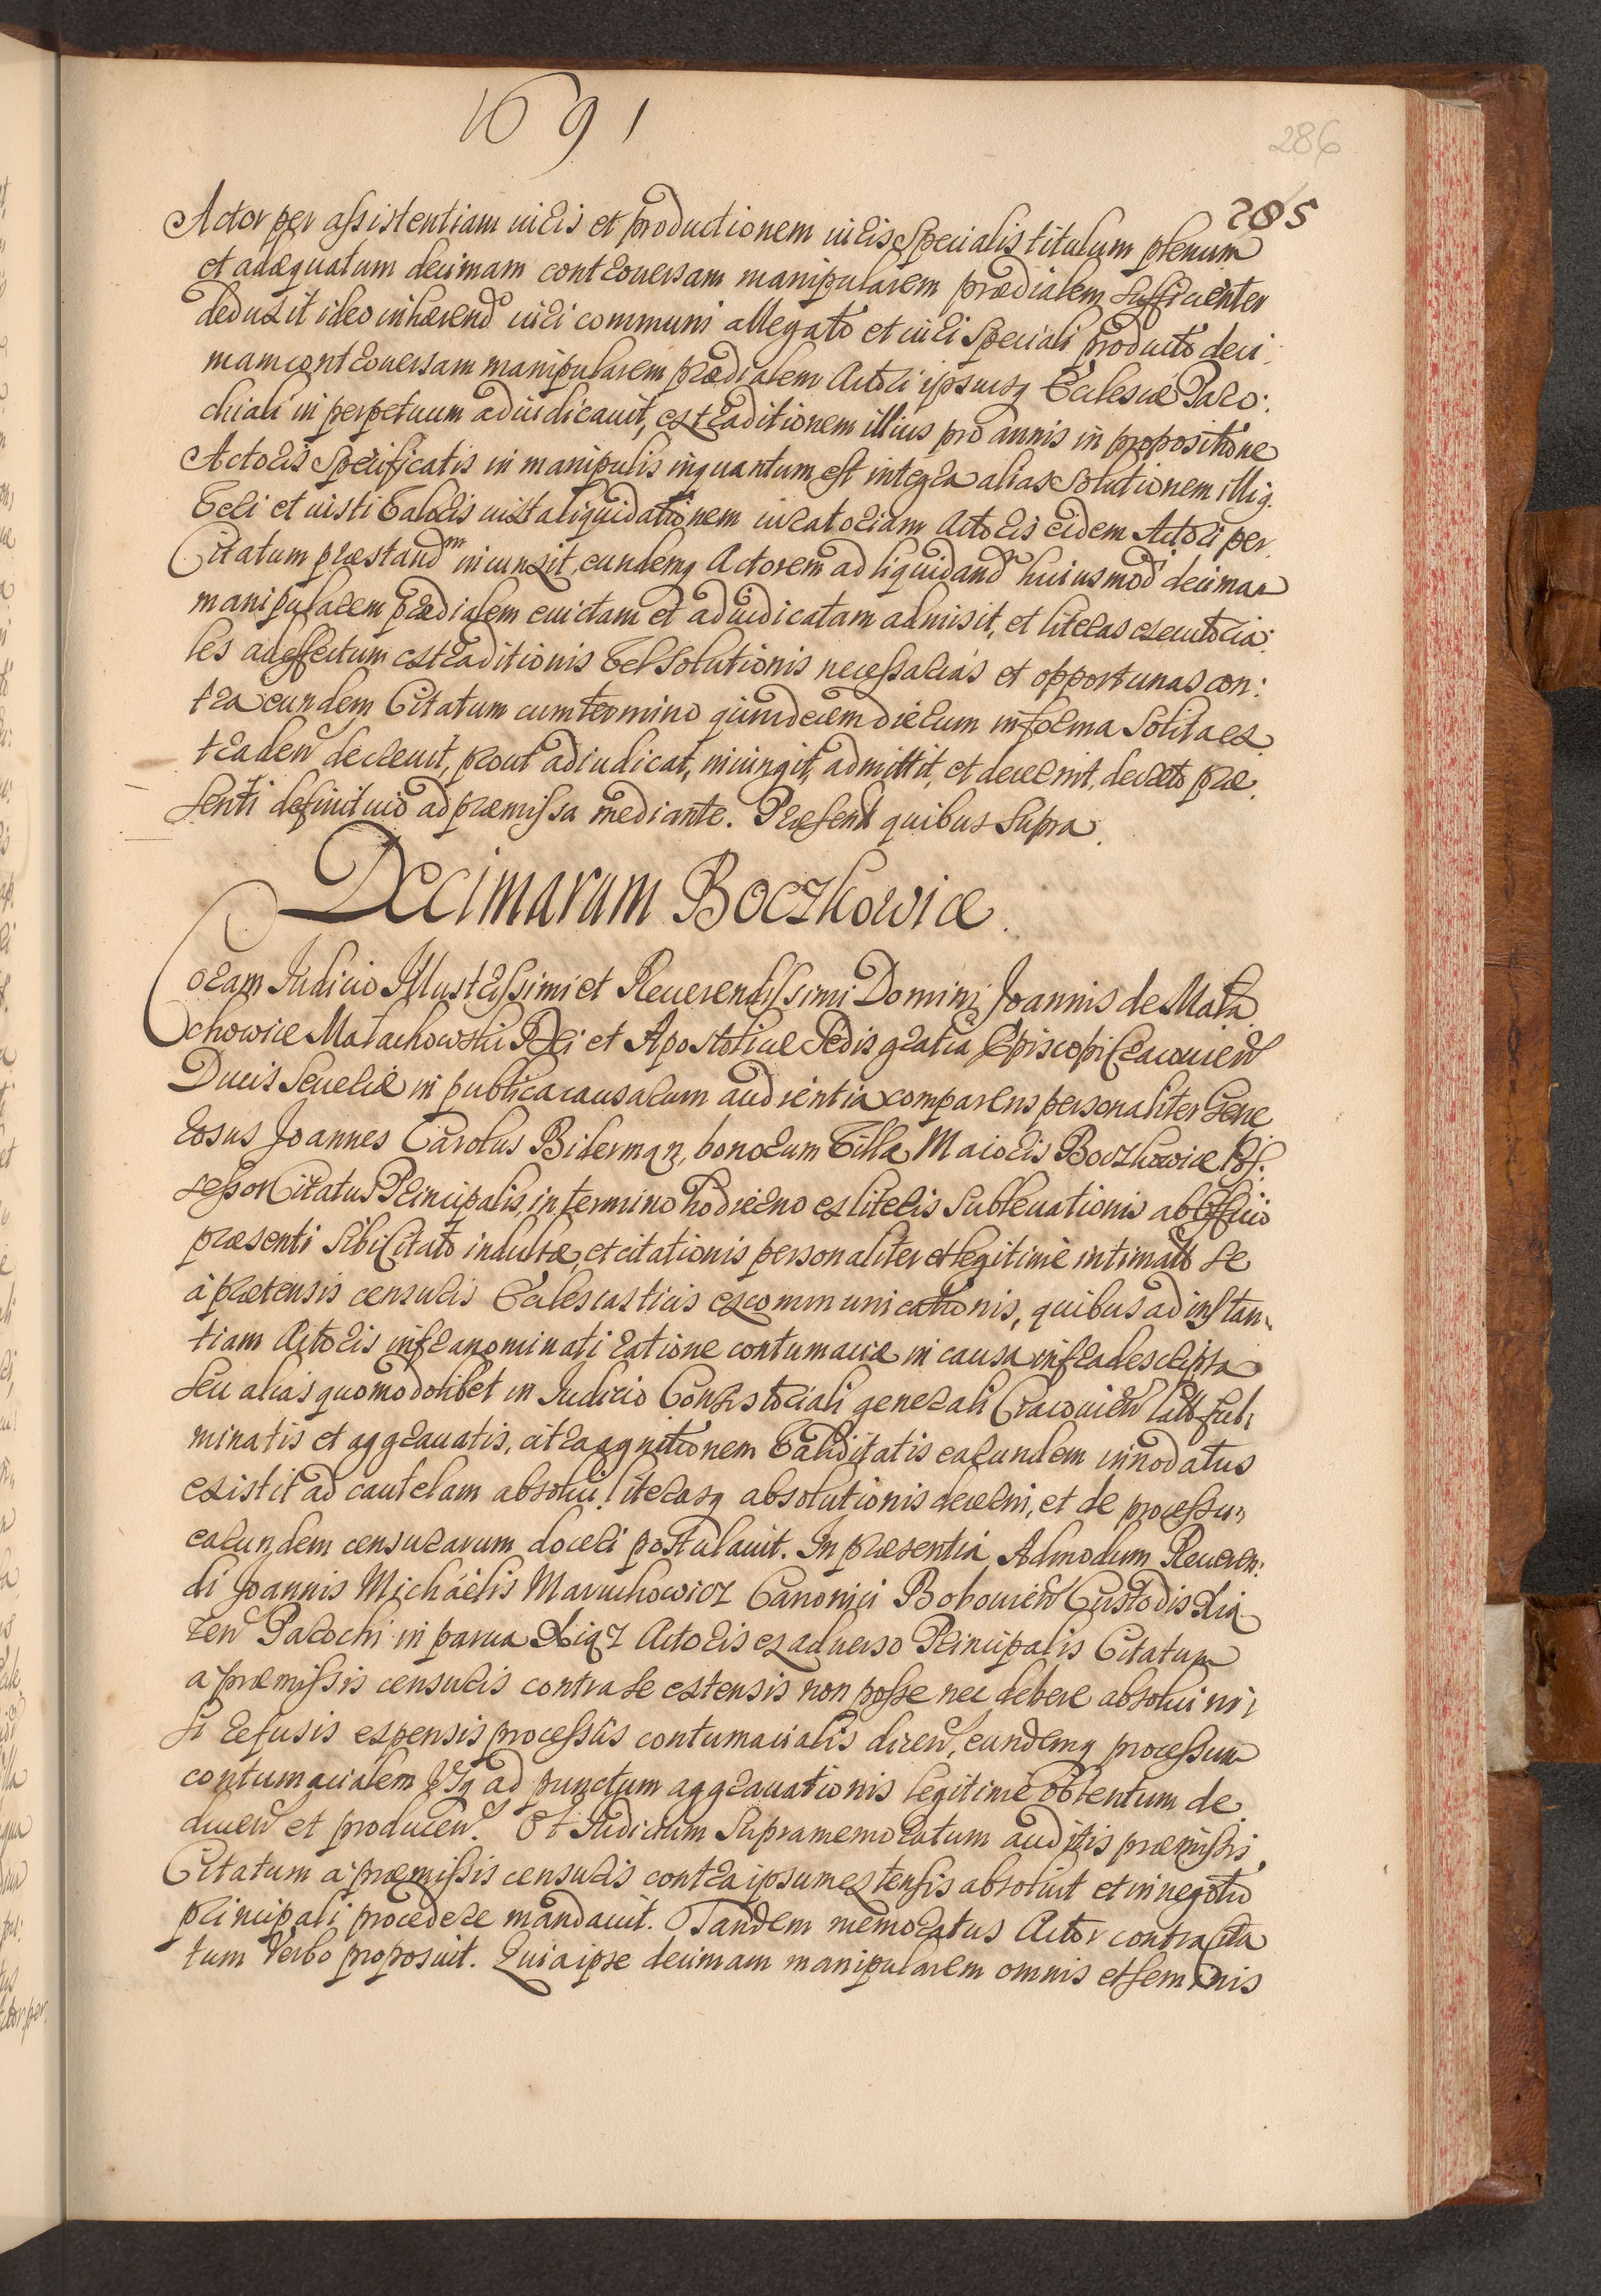 1691
286
285
Actor per assistentiam iuris et productionem iuris specialis titulum plenum
et adæquatum decimam controuersam manipularem prædialem sufficienter
deduxit ideo inhærend iuri communi allegato et iuri speciali producto deci:
mam controuersam manipularem prædialem Actori ipsiusq Ecclesiæ Paro:
chiali in perpetuum adiudicauit, extraditionem illius pro annis in propositione
Actoris specificatis in manipulis inquantum est integra alias solutionem illig.
veri et iusti valoris iuxta liquidationem iuratoriam Actoris eidem Actori per
Citatum præstand iniunxit, eundemq Actorem ad liquidand huiusmod decimam
manipularem prædialem euictam et adiudicatam admisit, et literas executoria:
les ad effectum extraditionis vel solutionis necessarias et opportunas con:
tra eundem Citatum cum termino quindecem dierum in forma solita ex
traden decreuit, prout adiudicat, iniungit, admittit, et decernit, decreto præ
senti definitiuo ad præmissa mediante. Præsent quibus supra.
Decimarum Boczkowice.
Coram Iudicio Illustrissimi et Reuerendissimi Domini Joannis de Mała
chowice Małachowski Dei et Apostolicæ Sedis gratia Episcopi Cracouien
Ducis Seueriæ in publica causarum audientia comparens personaliter Gene
rosus Joannes Carolus Biderman, bonorum Villæ Maioris Boczkowice Pos:
sessor Citatus Principalis, in termino hodierno ex literis subleuationis ab Officio
præsenti sibi Citato indultæ, et citationis personaliter et legitimè intimatæ se
à prætensis censuris Ecclesiasticis excommunicationis, quibus ad instan
tiam Actoris infranominati ratione contumaciæ in causa infradescripta
seu alias quomodolibet in Iudicio Consistoriali generali Cracouien latis ful
minatis et aggrauatis, citra agnitionem validitatis earundem innodatus
existit ad cautelam absolui, literasq absolutionis decerni, et de processu
earundem censurarum doceri postulauit. In præsentia Admodum Reueren:
di Joannis Michaelis Maruchowicz Canonici Bobouien Custodis Xią
zen Parochi in parua Xiąz Actoris ex aduerso Principalis Citatum
a præmissis censuris contra se extensis non posse nec debere absolui ni
si refusis expensis processus contumacialis dicen, eundemq processum
contumacialem vsq ad punctum aggrauationis legitimè obtentum de
ducen et producen. Et Iudicium supramemoratum auditis præmissis
Citatum a præmissis censuris contra ipsum extensis absoluit et in negotio
principali procedere mandauit. Tandem memoratus Actor contra Cita
tum verbo proposuit. Quia ipse decimam manipularem omnis et seminis